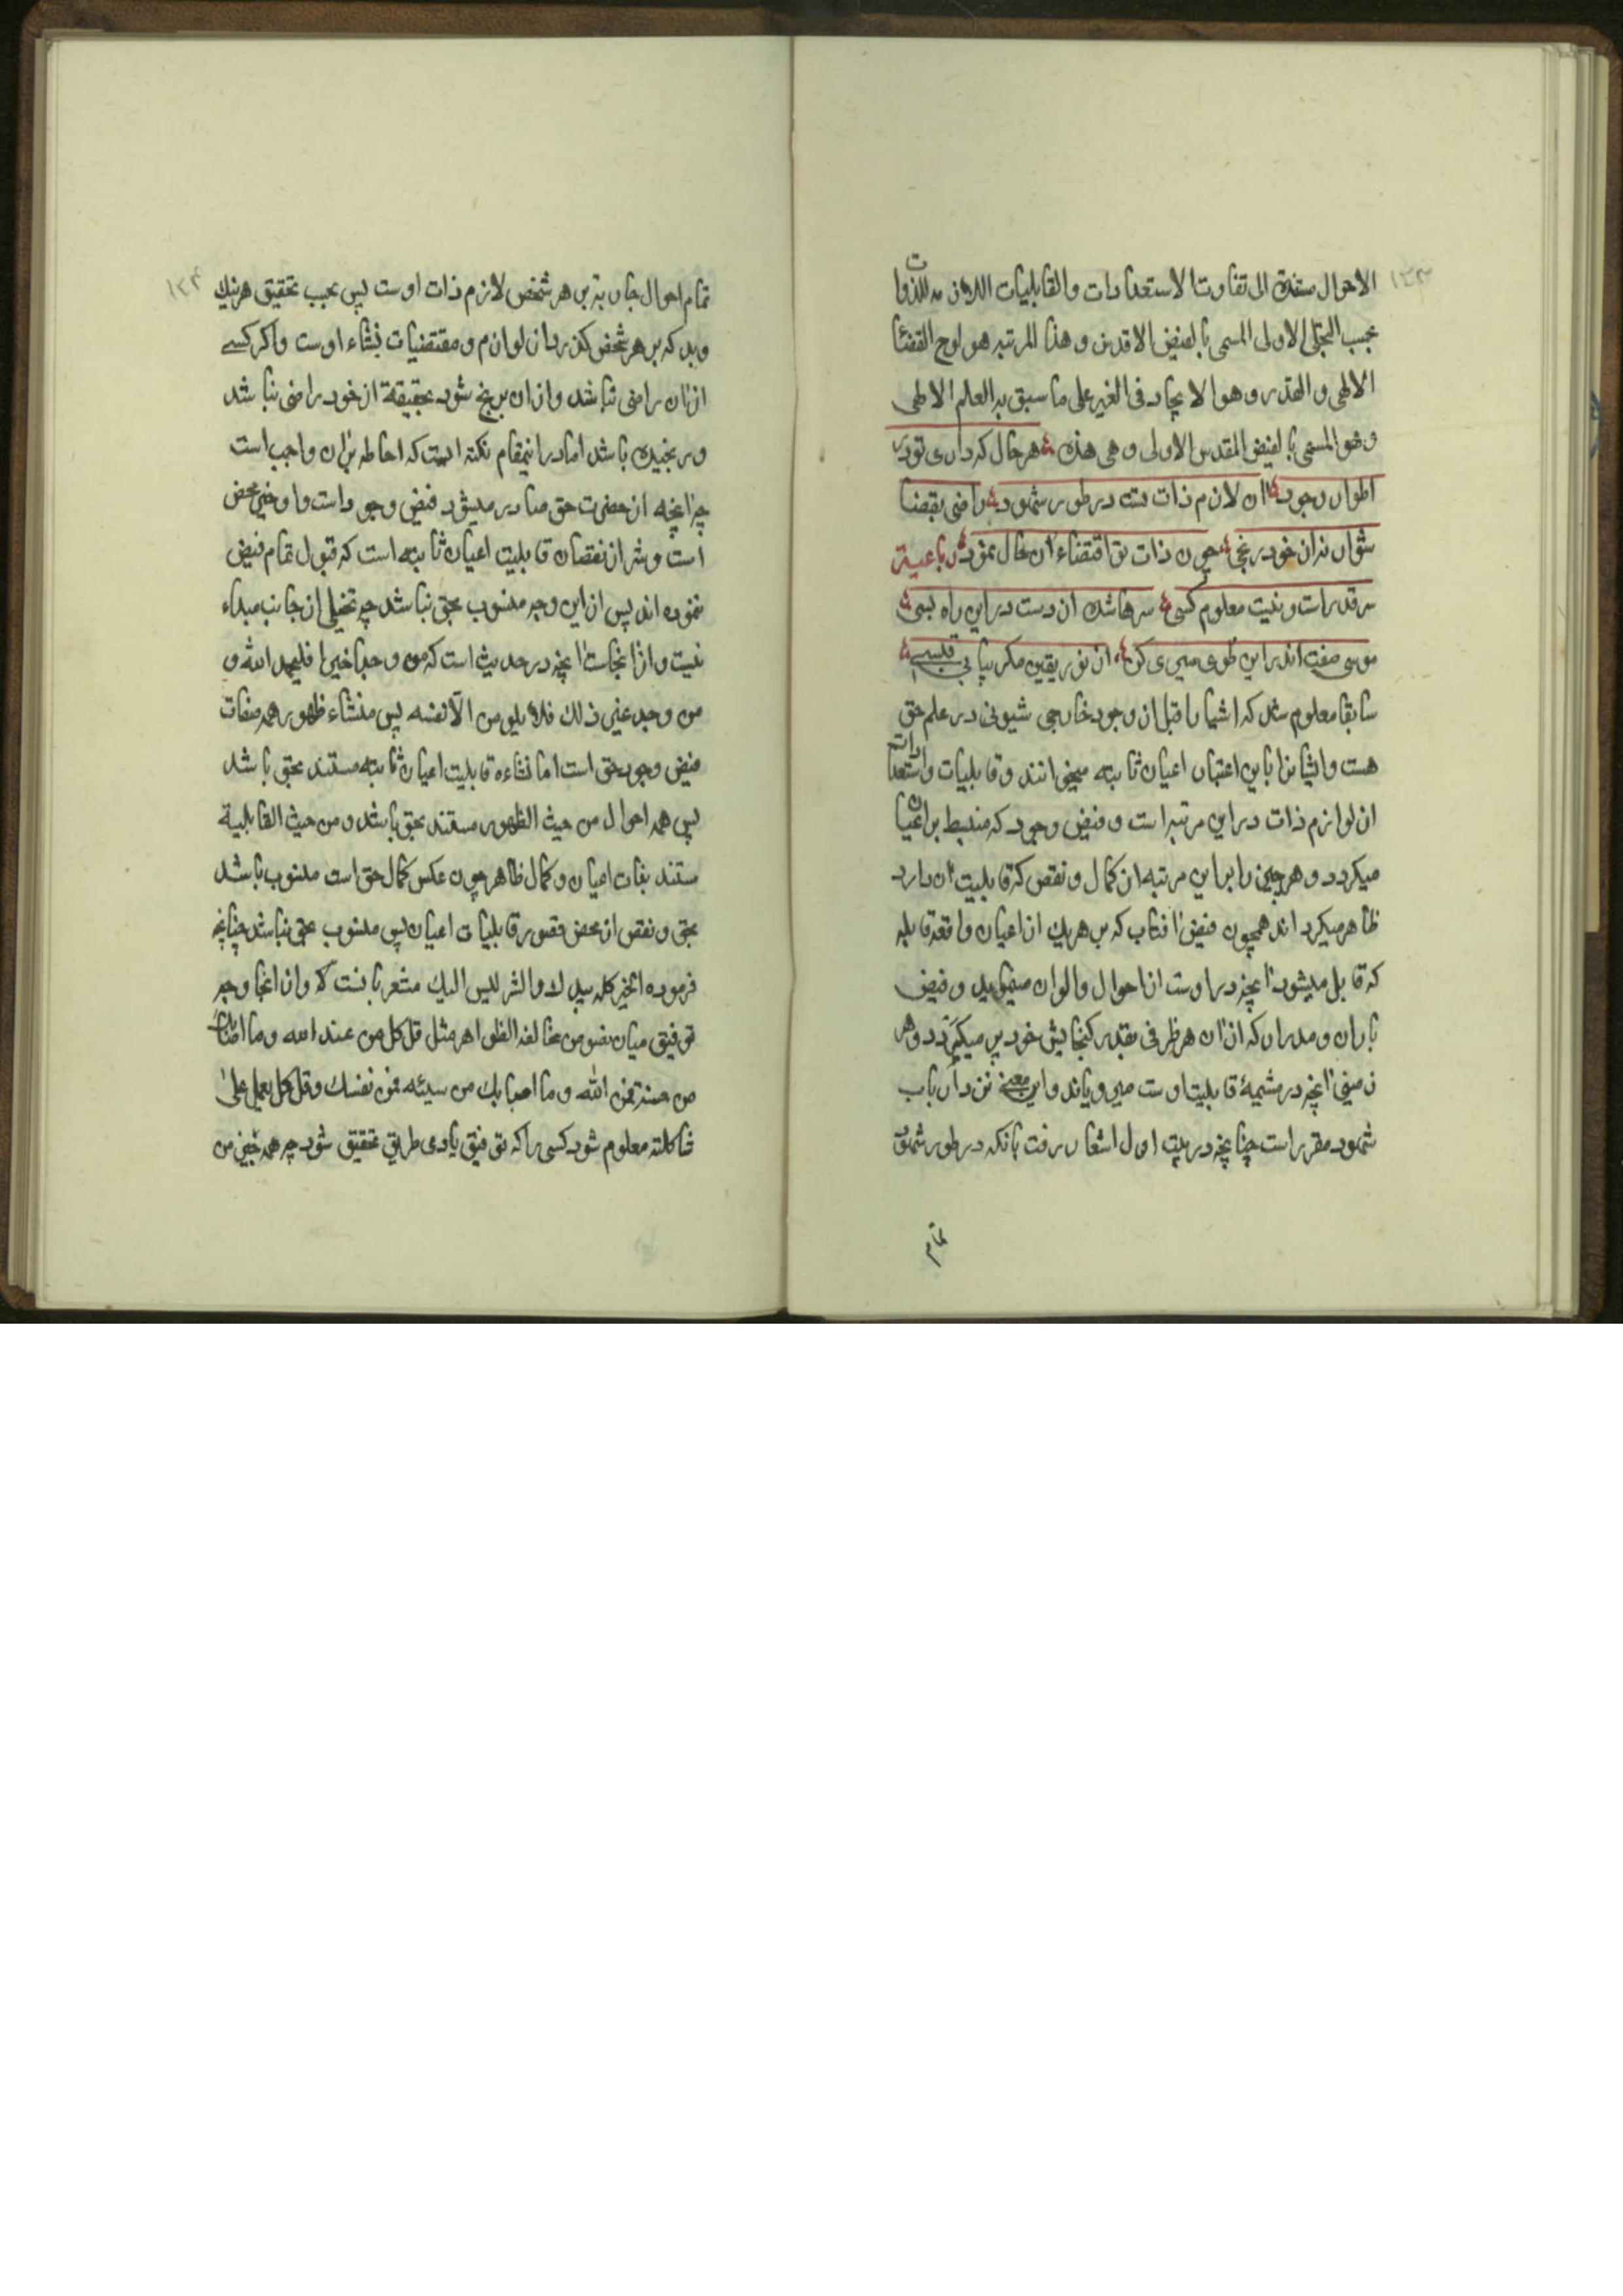 ۱۳۳
الاحوال مستندة الی تفاوت الاستعدادات والقابلیات اللازمه للذوات
بحسب التجلی الاولی المسمی بالفیض الاقدس وهذا المرتبه هو لوح القضا
الالهی والقدر وهو الایجاد فی الغیر علی ما سبق به العلم الالهی
وهو المسمی بالفیض المقدس الاولی وهی هذه هر حال که داری تو در
اطوار وجود ان لازم ذات تست در طور شهود راضی بقضا
شو از خود رنجی چون ذات تو اقتضاء ان حال نمود رباعیة
سر قدر است و نیست معلوم کسی سرها شده از دست در این راه بسی
موسی صفت اندر این طوی سیری کن از نور یقین مکر بیابی قبسی
سابقا معلوم شد که اشیا را قبل از وجود خارجی شیونی در علم حق
هست وایشانرا باین اعتبار اعیان ثابته میخوانند وقابلیات واستعدادات
از لوازم ذات در این مرتبه است وفیض وجود که منبسط بر اعیان
میکردد وهر چیز را بر این مرتبه از کمال ونقص که قابلیت ان دارد
ظاهر میکرداند همچون فیض افتاب که بر هر یک از اعیان واقعه قابله
که قابل میشود انچه در اوست از احوال والوان مینماید وفیض
باران ومدرار که از ان هر ظرفی بقدر کنجایش خود پر میکردد وهر
زمینی انچه در مشیمهٔ قابلیت اوست میرویاند واین معنی نزد ارباب
شهود مقرر است چنانچه در بیت اول اشعار رفت بانکه در طور شهود
تمام
۱۳۴
تمام احوال جاریه بر هر شخص لازم ذات اوست پس بحسب تحقیق هر نیک
وبد که بر هر شخص کذرد از لوازم ومقتضیات نشاء اوست واکر کسی
از ان راضی نباشد واز ان برنجد شود بحقیقة از خود راضی نباشد
ورنجیده باشد اما در اینمقام نکته ایست که احاطه بران واجب است
چرا انچه از حضرت حق صادر میشود فیض وجود است و او خیر محض
است وشر از نقصان قابلیت اعیان ثابته است که قبول تمام فیض
ننموده اند پس از این وجه منسوب بحق نباشد چه بخیلی از جانب مبداء
نیست واز اینجاست انچه در حدیث است که من وجد خیرا فلیحمد الله و
من وجد غیر ذلک فلا یلومن الا نفسه پس منشاء ظهور همه صفات
فیض وجود حق است اما نشاءه قابلیت اعیان ثابته مستند بحق باشد
پس همه احوال من حیث الظهور مستند بحق باشد ومن حیث القابلیة
مستند بذات اعیان وکمال ظاهر چون عکس کمال حق است منسوب باشد
بحق ونقص از محض قصور قابلیات اعیان پس منسوب بحق نباشد چنانچه
فرموده الخیر کله بیدک والشر لیس الیک مشعر بانست واز اینجا وجه
توفیق میان نصوص مخالفه الظواهر مثل قل کل من عند الله وما اصابک
من حسنة فمن الله وما اصابک من سیئه فمن نفسک وقل کل یعمل علی
شاکلته معلوم شود کسی را که توفیق یادی طریق تحقیق شود چه همه خیر من